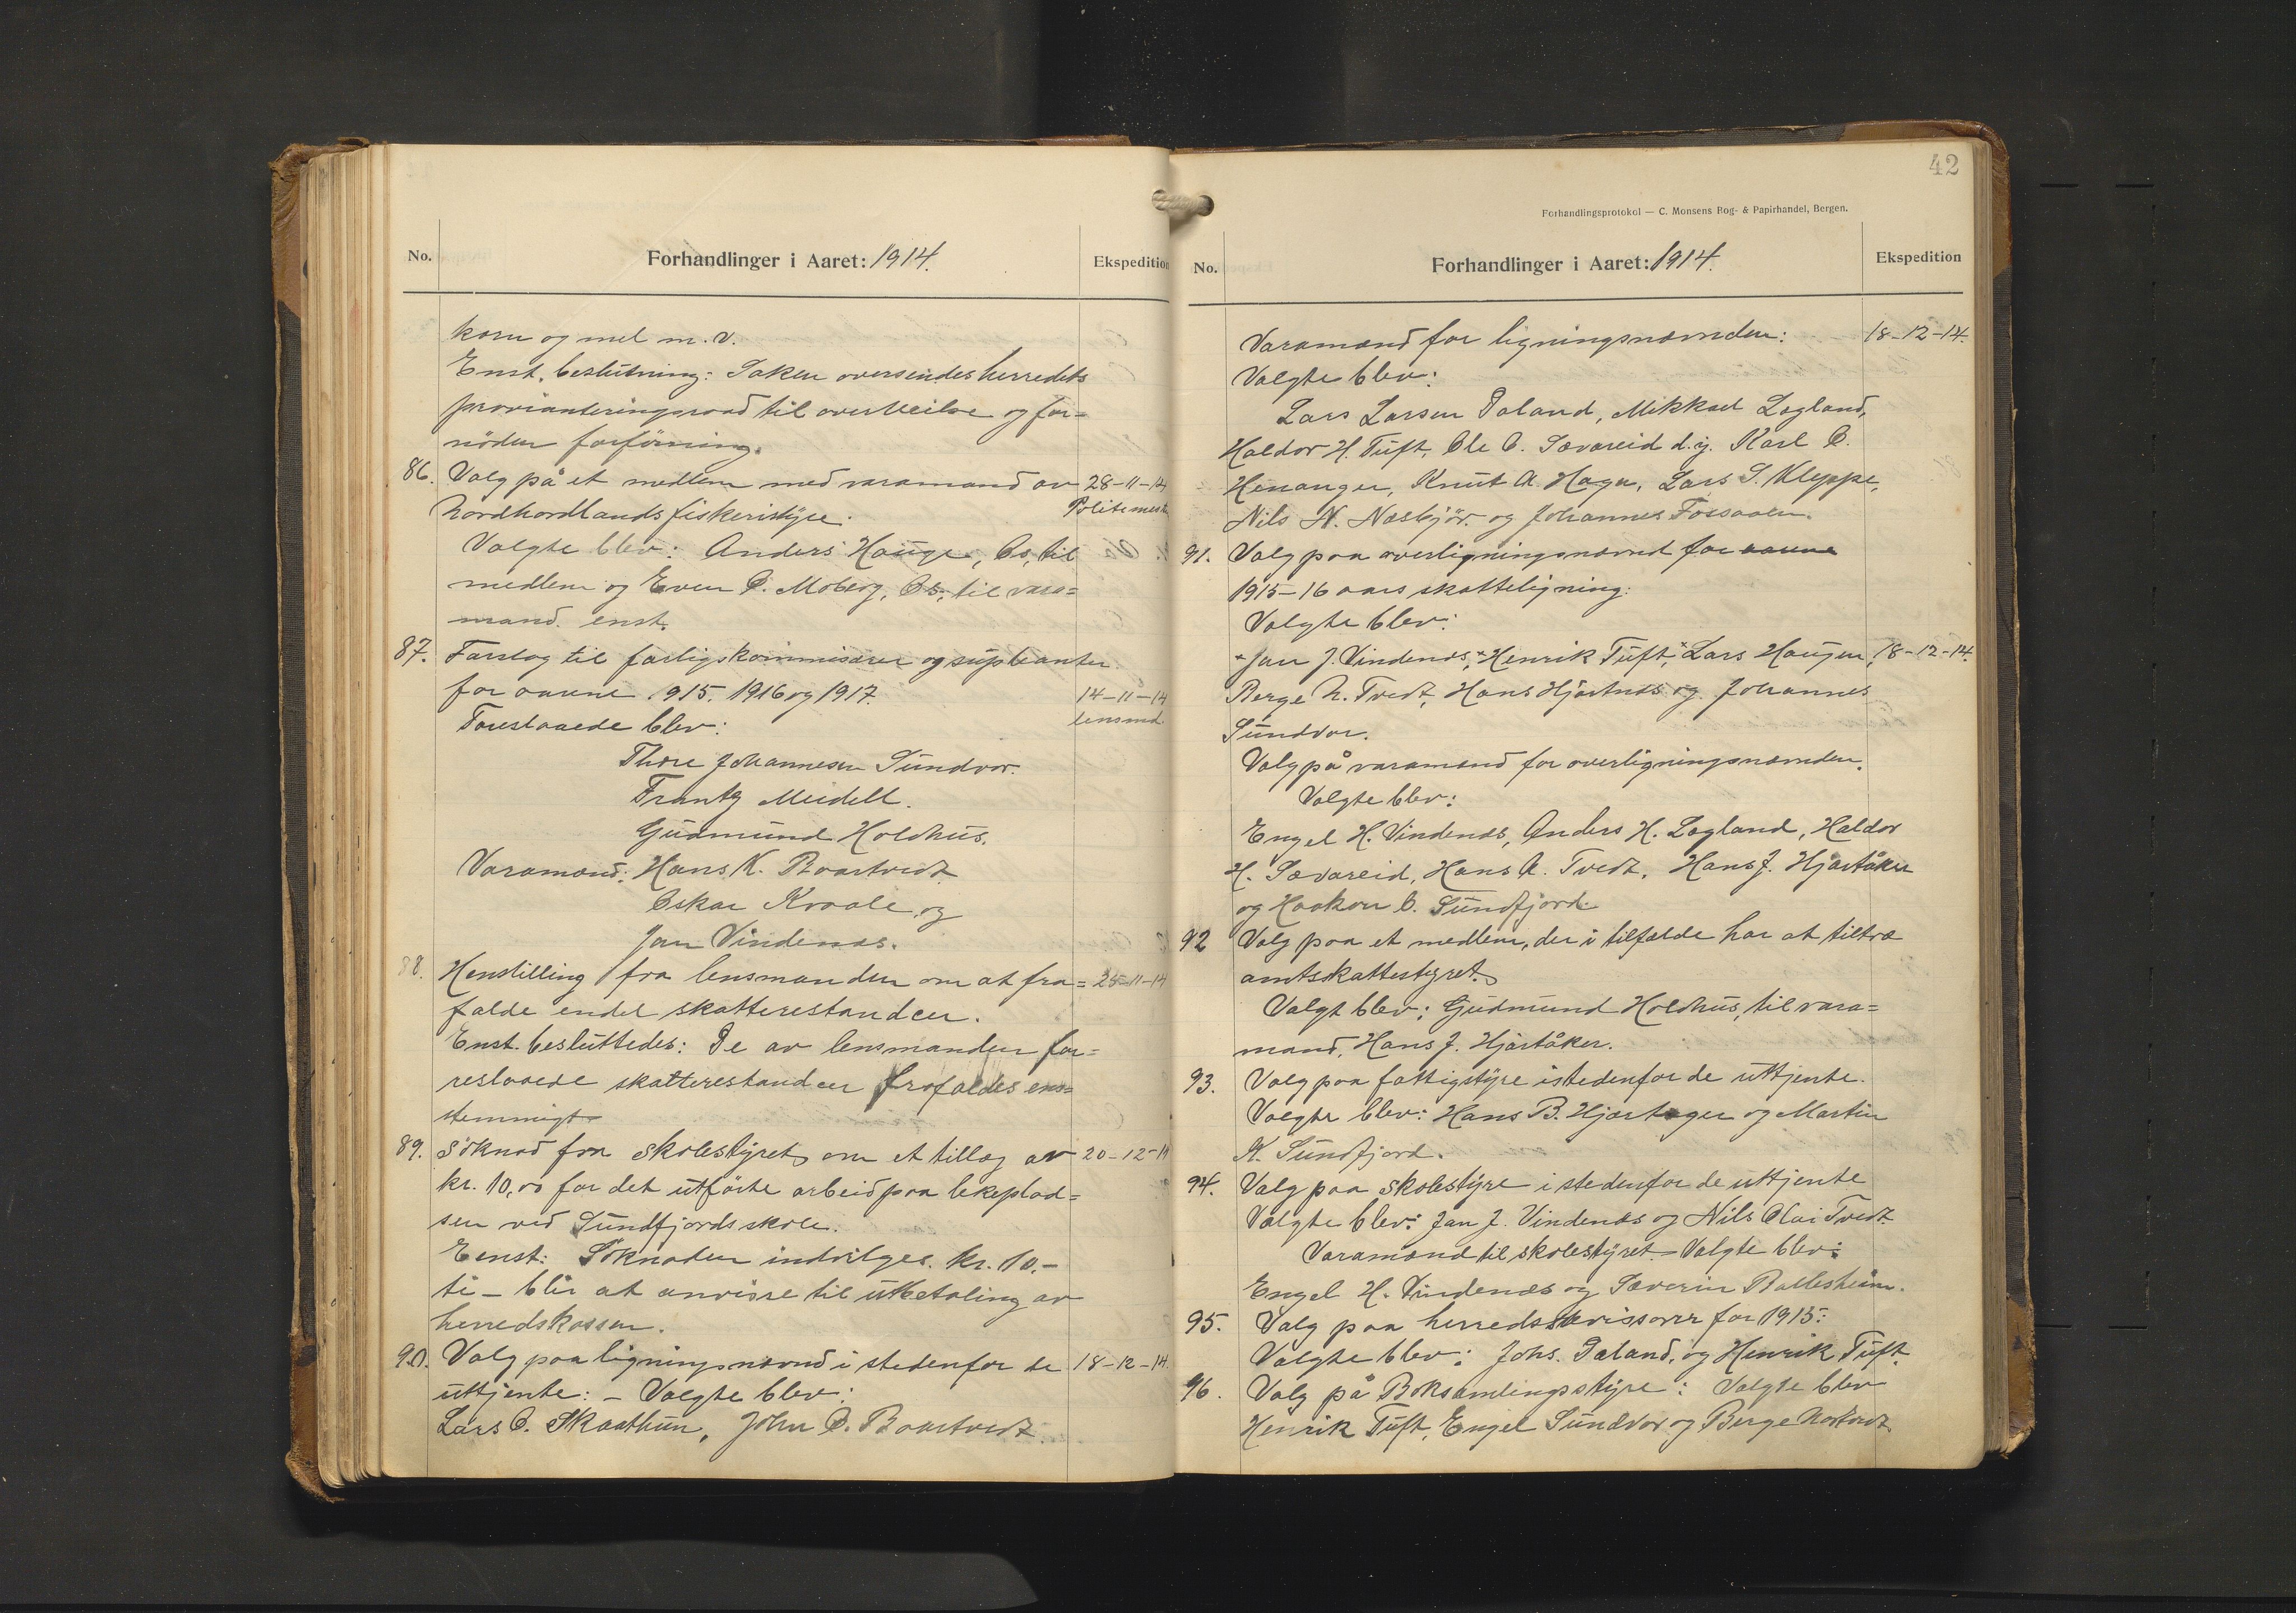 No.
Forhandlinger i Aaret: 1914.
Ekspedition
korn og mel m.v.
Enst. beslutning: Saken oversendes herredets
provianteringsraad til overveielse og for-
nöden forföining.
86. Valg på et medlem med varamand av 28-11-14
Nordhordlands fiskeristyre. Politimest
Valgte blev: Anders Hauge, Os, til
medlem og Even O. Moberg, Os, til vara=
mand. enst.
87. Forslag til forligskommisærer og supleanter
for aarene 1915. 1916 og 1917. 14-11-14
Foreslaaede blev: lensmd.
Thore Johannesen Sundvor.
Frantz Meidell.
Gudmund Holdhus.
Varamænd: Hans K. Baartvedt
Oskar Kvaale og
Jan Vindenæs.
88. Henstilling fra lensmanden om at fra= 25-11-14
falde endel skatterestancer.
Enst. besluttedes: De av lensmanden fo=
reslaaede skatterestancer frafaldes ens=
stemmigt
89. Söknad fra skolestyret om et tillæg av 20-12-14
kr. 10,00 for det utförte arbeid paa lekeplad=
sen ved Sundfjords skole.
Eenst: Söknaden indvilges. kr. 10.-
ti - blir at anvisse til utbetaling av
herredskassen.
90. Valg paa ligningsnævnd i stedenfor de 18-12-14.
uttjente: - Valgte blev:
Lars O. Skaathun, John O. Baartvedt.
42
Forhandlingsprotokol — C. Monsens Bog- & Papirhandel, Bergen.
No.
Forhandlinger i Aaret: 1914.
Ekspedition
Varamænd for ligningsnævnden: 18-12-14.
Valgte blev:
Lars Larsen Døland, Mikkael Løgland,
Haldor H. Tuft, Ole O. Sævareid d.y. Karl O.
Henanger, Knut A. Haga, Lars S. Kleppe,
Nils N. Næsbjör og Johannes Fossaaen.
91. Valg paa overligningsnævnd for aarene
1915-16 aars skatteligning:
Valgte blev:
Jan J. Vindenæs, Henrik Tuft, Lars Haugen, 18-12-14.
Berge N. Tvedt, Hans Hjartnæs og Johannes
Sundvor.
Valg på varamænd for overligningsnævnden.
Valgte blev:
Engel H. Vindenæs, Anders H. Løgland, Haldor
H. Sævareid, Hans A. Tvedt, Hans J. Hjartåker
og Haakon O. Sundfjord.
92 Valg paa et medlem, der i tilfælde har at tiltræ
amtsskattestyret.
Valgt blev: Gudmund Holdhus, til vara=
mand, Hans J. Hjartåker.
93. Valg paa fattigstyre istedenfor de uttjente.
Valgte blev: Hans B. Hjartager og Martin
K. Sundfjord.
94. Valg paa skolestyre i stedenfor de uttjente
Valgte blev: Jan J. Vindenæs og Nils Olai Tvedt.
Varamænd til skolestyret - Valgte blev:
Engel H. Vindenæs og Sæverin Ballesheim.
95. Valg paa herredsrevissorer for 1915:
Valgte blev: Johs. Døland, og Henrik Tuft.
96. Valg på Boksamlingsstyre: Valgte blev
Henrik Tuft, Engel Sundvor og Berge Nortvedt